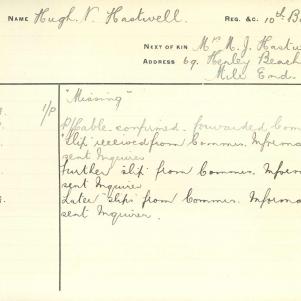 NAME Hugh. V. Hastwell. REG. &C. 10th. B
NEXT OF KIN Mr. N. J. Hastw
ADDRESS 69. Henley Beach
Mile End.
"Missing"
1/P P/Cable confirmed. forwarded Com
"Slip" received from Commrs. Informa
sent Inquirer
Further "slip" from Commrs. Informa
sent Inquirer
Later "slip" from Commrs. Informa
sent Inquirer.